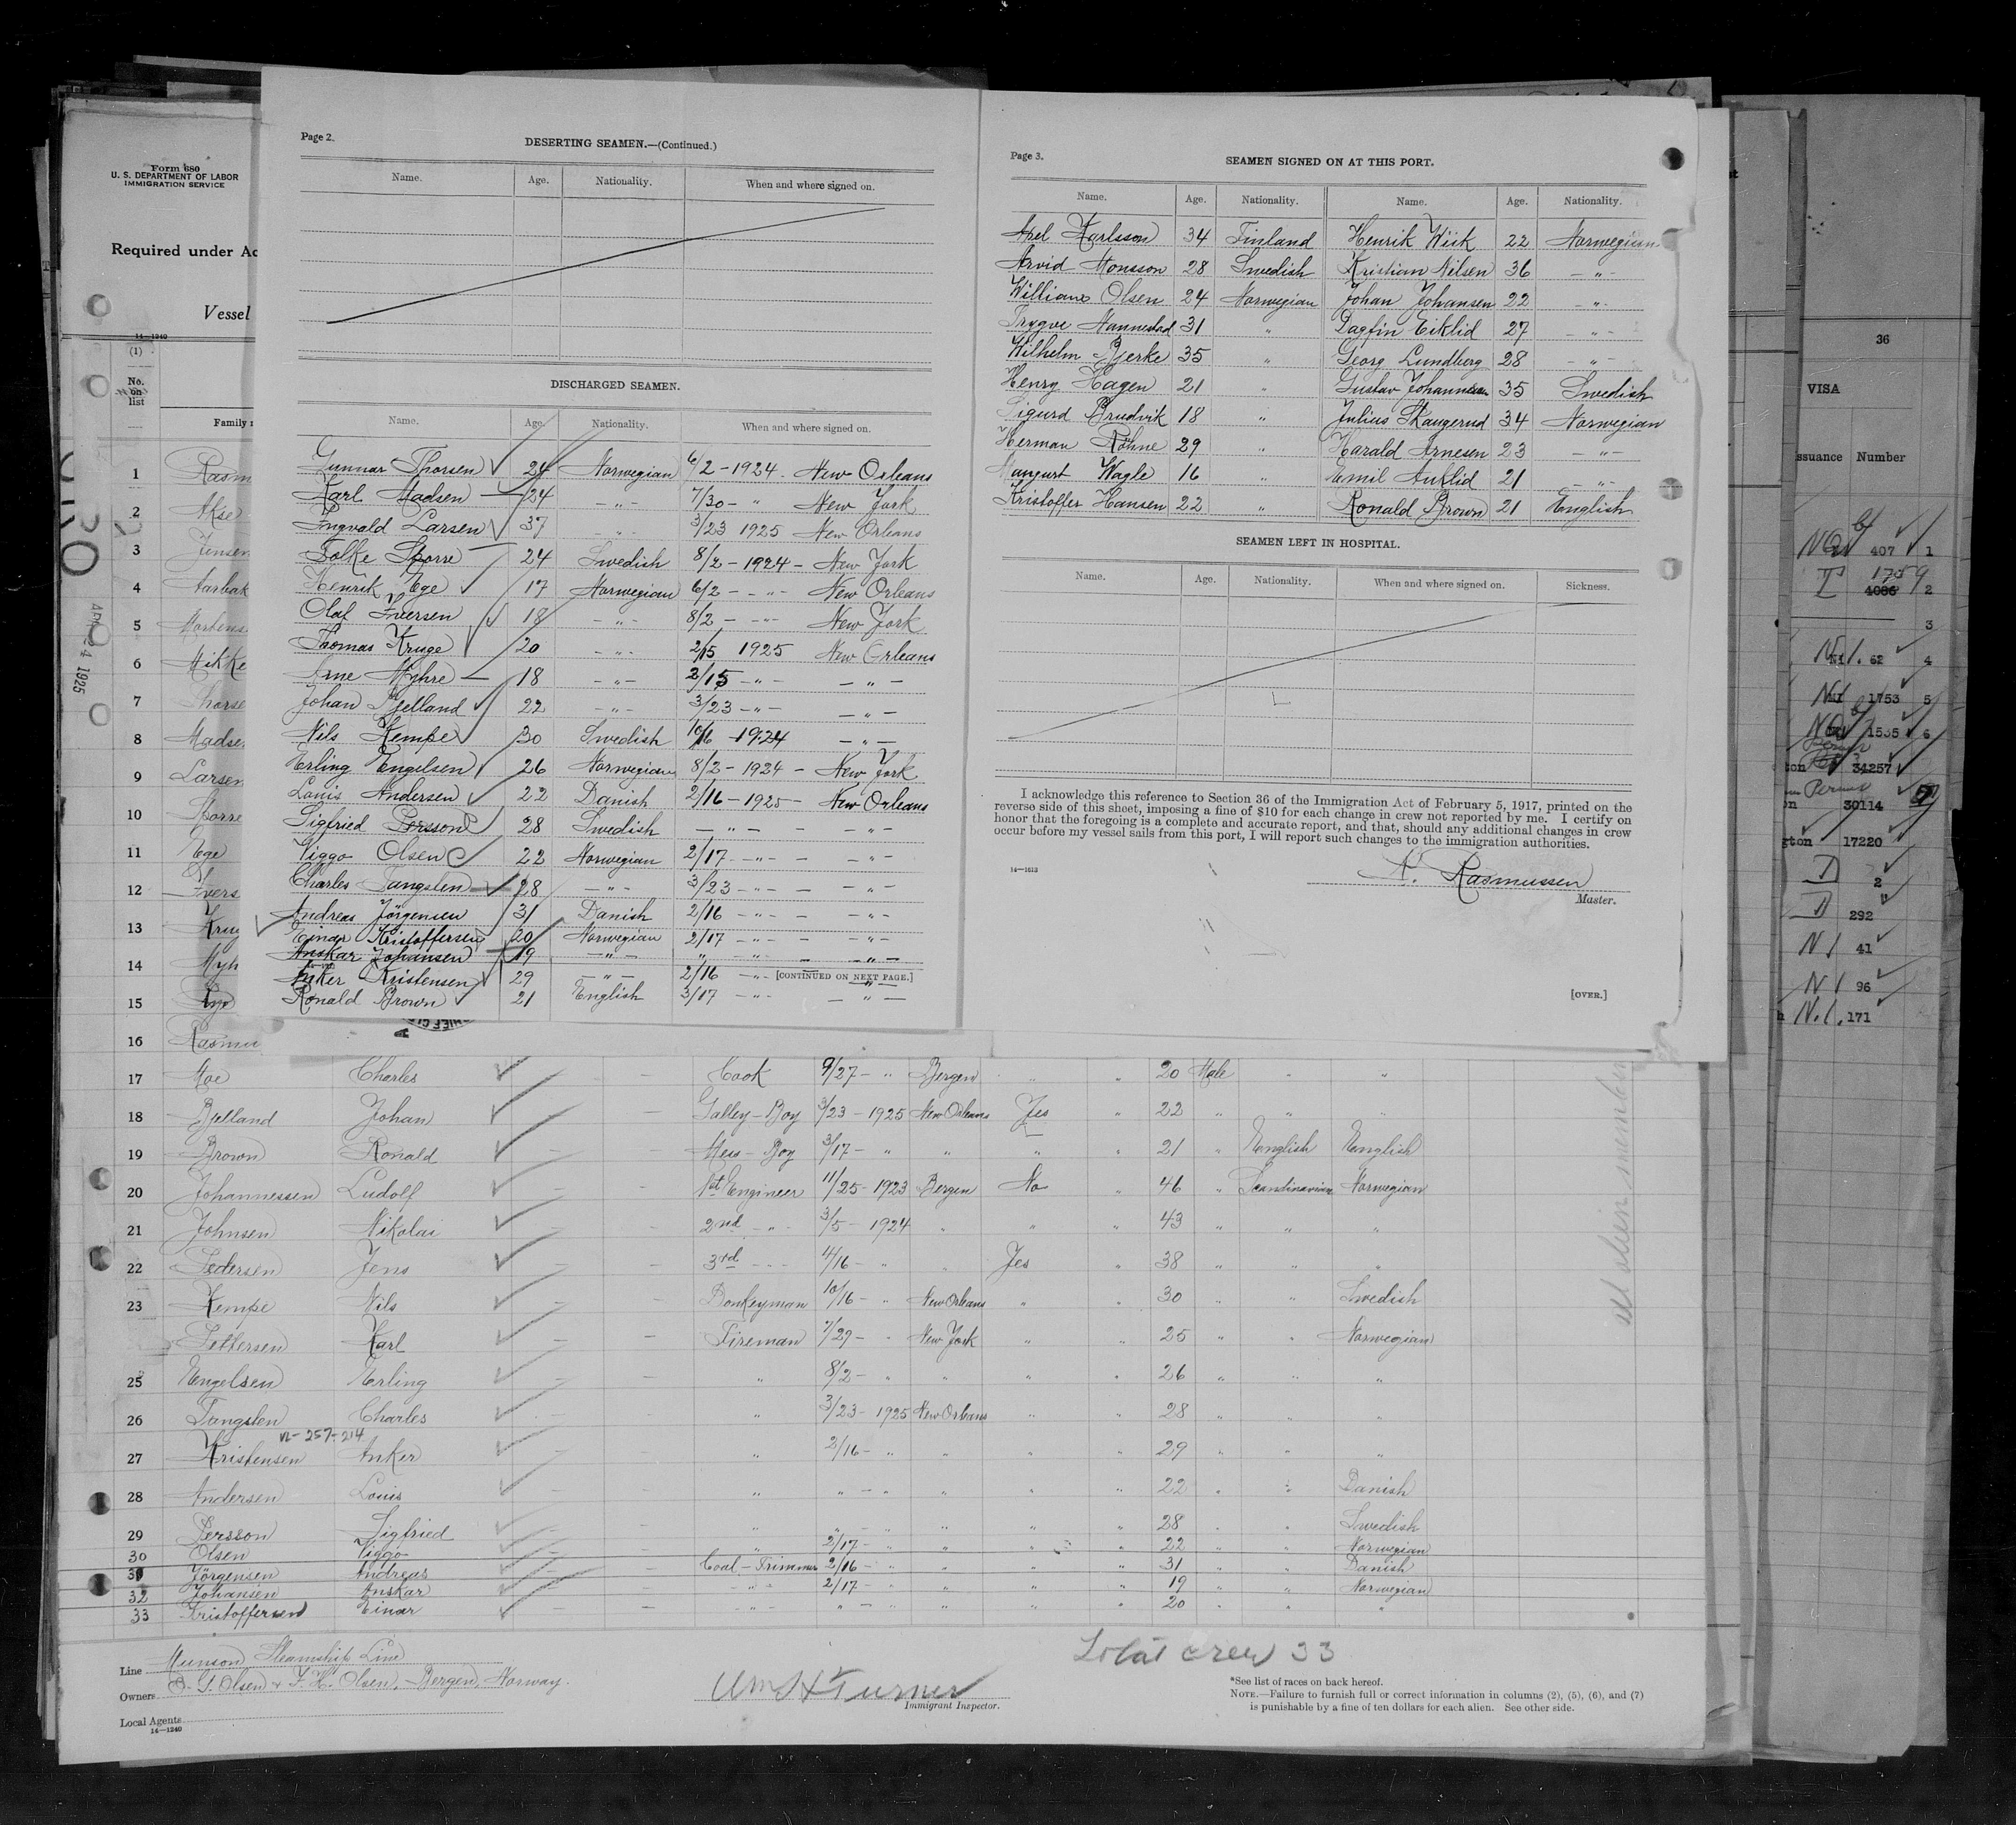 Form 680
U. S. DEPARTMENT OF LABOR
IMMIGRATION SERVICE
Required under Ac
Vessel
14—1240
(1)
No. on list
Family
APR 24 1925
Page 2.
DESERTING SEAMEN.—(Continued.)
Name. Age. Nationality. When and where signed on.
DISCHARGED SEAMEN.
Name. Age. Nationality. When and where signed on.
Gunnar Thorsen 24 Norwegian 6/2 - 1924 - New Orleans
Karl Madsen 24 - " - 7/30 - " New York
Ingvald Larsen 37 - " - 3/23 1925 New Orleans
Folke Sporre 24 Swedish 8/2 - 1924 - New York
Henrik Ege 17 Norwegian 6/2 - " - New Orleans
Olaf Iversen 18 - " - 8/2 - " - New York
Thomas Kruge 20 - " - 2/15 1925 New Orleans
Arne Myhre 18 - " - 2/15 - " - - " -
Johan Bjelland 22 - " - 3/23 - " - - " -
Nils Kempe 30 Swedish 10/16 - 1924 - " -
Erling Engelsen 26 Norwegian 8/2 - 1924 - New York
Louis Andersen 22 Danish 2/16 - 1925 - New Orleans
Sigfried Persson 28 Swedish - " - - " -
Viggo Olsen 22 Norwegian 2/17 - " - - " -
Charles Tangsten 28 - " - 3/23 - " - - " -
Andreas Jörgensen 31 Danish 2/16 - " - - " -
Einar Kristoffersen 20 Norwegian 2/17 - " - - " -
Anskar Johansen 19 - " - " - " - - " -
Anker Kristensen 29 - " - 2/16 - " - - " -
[CONTINUED ON NEXT PAGE.]
Ronald Brown 21 English 3/17 - " - - " -
Page 3.
SEAMEN SIGNED ON AT THIS PORT.
Name. Age. Nationality. Name. Age. Nationality.
Axel Karlsson 34 Finland Henrik Wiik 22 Norwegian
Arvid Monsson 28 Swedish Kristian Nilsen 36 - " -
William Olsen 24 Norwegian Johan Johansen 22 - " -
Trygve Nannestad 31 " Dagfin Eiklid 27 - " -
Wilhelm Bjerke 35 " Georg Lundberg 28 - " -
Henry Hagen 21 " Gustav Johannesen 35 Swedish
Sigurd Brudvik 18 " Julius Skaugerud 34 Norwegian
Herman Röhne 29 " Harald Arnesen 23 - " -
Wagle 16 " Emil Auklid 21 - " -
Kristoffer Hansen 22 " Ronald Brown 21 English
SEAMEN LEFT IN HOSPITAL.
Name. Age. Nationality. When and where signed on. Sickness.
I acknowledge this reference to Section 36 of the Immigration Act of February 5, 1917, printed on the
reverse side of this sheet, imposing a fine of $10 for each change in crew not reported by me. I certify on
honor that the foregoing is a complete and accurate report, and that, should any additional changes in crew
occur before my vessel sails from this port, I will report such changes to the immigration authorities.
14—1613
N. Rasmussen
Master.
[OVER.]
1 Rasm
2 Akse
3 Jensen
4 Aarbak
5 Mortens
6 Mikke
7 Thorse
8 Madse
9 Larsen
10 Sporre
11 Ege
12 Ivers
13 Krug
14 Myh
15
16 Rasmu
17 Moe Charles Cook 9/27 - " Bergen " " 20 Male " "
18 Bjelland Johan Galley-Boy 3/23 - 1925 New Orleans Yes " 22 " " "
19 Brown Ronald Mess-Boy 3/17 - " " " " 21 " English English
20 Johannessen Ludolf 1st Engineer 11/25 - 1923 Bergen No " 46 " Scandinavian Norwegian
21 Johnsen Nikolai 2nd - " - 3/5 - 1924 " " " 43 " " "
22 Pedersen Jens 3rd - " - 4/16 - " " Yes " 38 " " "
23 Kempe Nils Donkeyman 10/16 - " New Orleans " " 30 " " Swedish
Pettersen Karl Fireman 7/29 - " New York " " 25 " " Norwegian
25 Engelsen Erling " 8/2 - " " " " 26 " " "
26 Tangsten Charles " 3/23 - 1925 New Orleans " " 28 " " "
n-257-214
27 Kristensen Anker " 2/16 - " " " " 29 " " "
28 Andersen Louis " " - " " " " 22 " " Danish
29 Persson Sigfried " " - " " " " 28 " " Swedish
30 Olsen Viggo " 2/17 - " " " " 22 " " Norwegian
31 Jörgensen Andreas Coal-Trimmer 2/16 - " " " " 31 " " Danish
32 Johansen Anskar - " - 2/17 - " " " " 19 " " Norwegian
33 Kristoffersen Einar - " - " - " " " " 20 " " "
all alien members
Total crew 33
Line Munson Steamship Line
Owners O. G. Olsen & F. H. Olsen, Bergen, Norway.
Local Agents
14—1240
Wm H Turner
Immigrant Inspector.
*See list of races on back hereof.
NOTE.—Failure to furnish full or correct information in columns (2), (5), (6), and (7)
is punishable by a fine of ten dollars for each alien. See other side.
36
VISA
ssuance Number
407 1
1759
4086 2
3
N1. 62 4
1753 5
1535 6
ton 34257
Permit
30114
gton 17220
2
292
N1 41
N1 96
N.1. 171